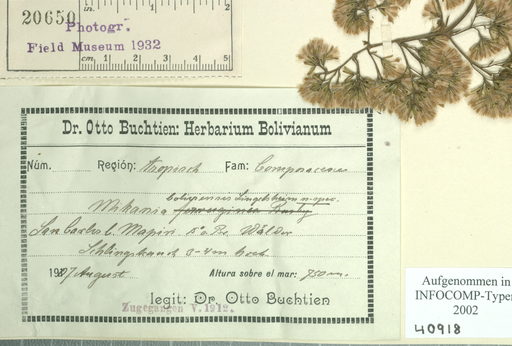 20650
in. 1 2
Photogr.
Field Museum 1932
cm 1 2 3 4 5
Dr. Otto Buchtien: Herbarium Bolivianum
Núm. Región: tropisch Fam: Compositaceae
boliviensis Lingelsheim n. spec.
Mikania ferruginea Rusby
San Carlos b. Mapiri
Schlingstrauch 3-4 m hoch
1907 August Altura sobre el mar: 750 m.
legit: Dr. Otto Buchtien
Zugegangen V. 1912.
Aufgenommen in
INFOCOMP-Typen
2002
40918